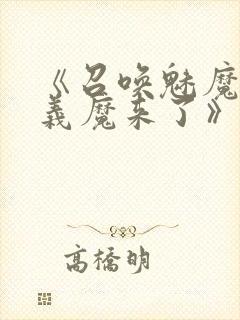 《召唤魅魔
義魔来了》
高橋明